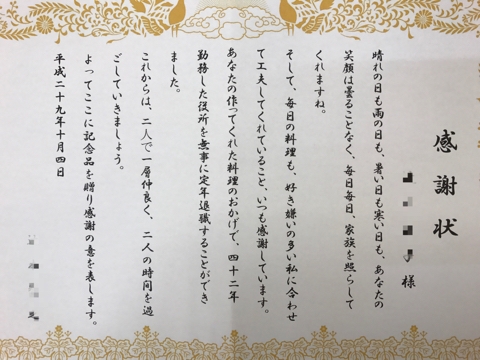 感謝状
様
晴れの日も雨の日も、暑い日も寒い日も、あなたの
笑顔は曇ることなく、毎日毎日、家族を照らして
くれますね。
そして、毎日の料理も、好き嫌いの多い私に合わせ
て工夫してくれていること、いつも感謝しています。
あなたの作ってくれた料理のおかげで、四十二年
勤務した役所を無事に定年退職することができ
ました。
これからは、二人で一層仲良く、二人の時間を過
ごしていきましょう。
よってここに記念品を贈り感謝の意を表します。
平成二十九年十月四日